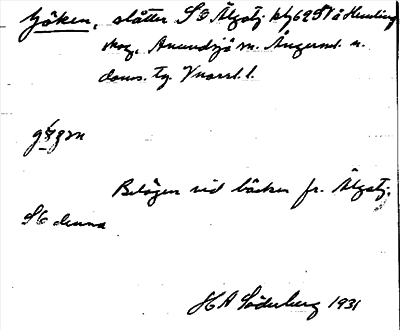 Göken, slåtter SO Älgtj. kbl 62 51 å Hemling
skog, Anundsjö sn. Ångerml. n.
doms. tg. Vnorrl. l.
Belägen vid bäcken fr. Älgtj.
SO denna
HA Söderberg 1931